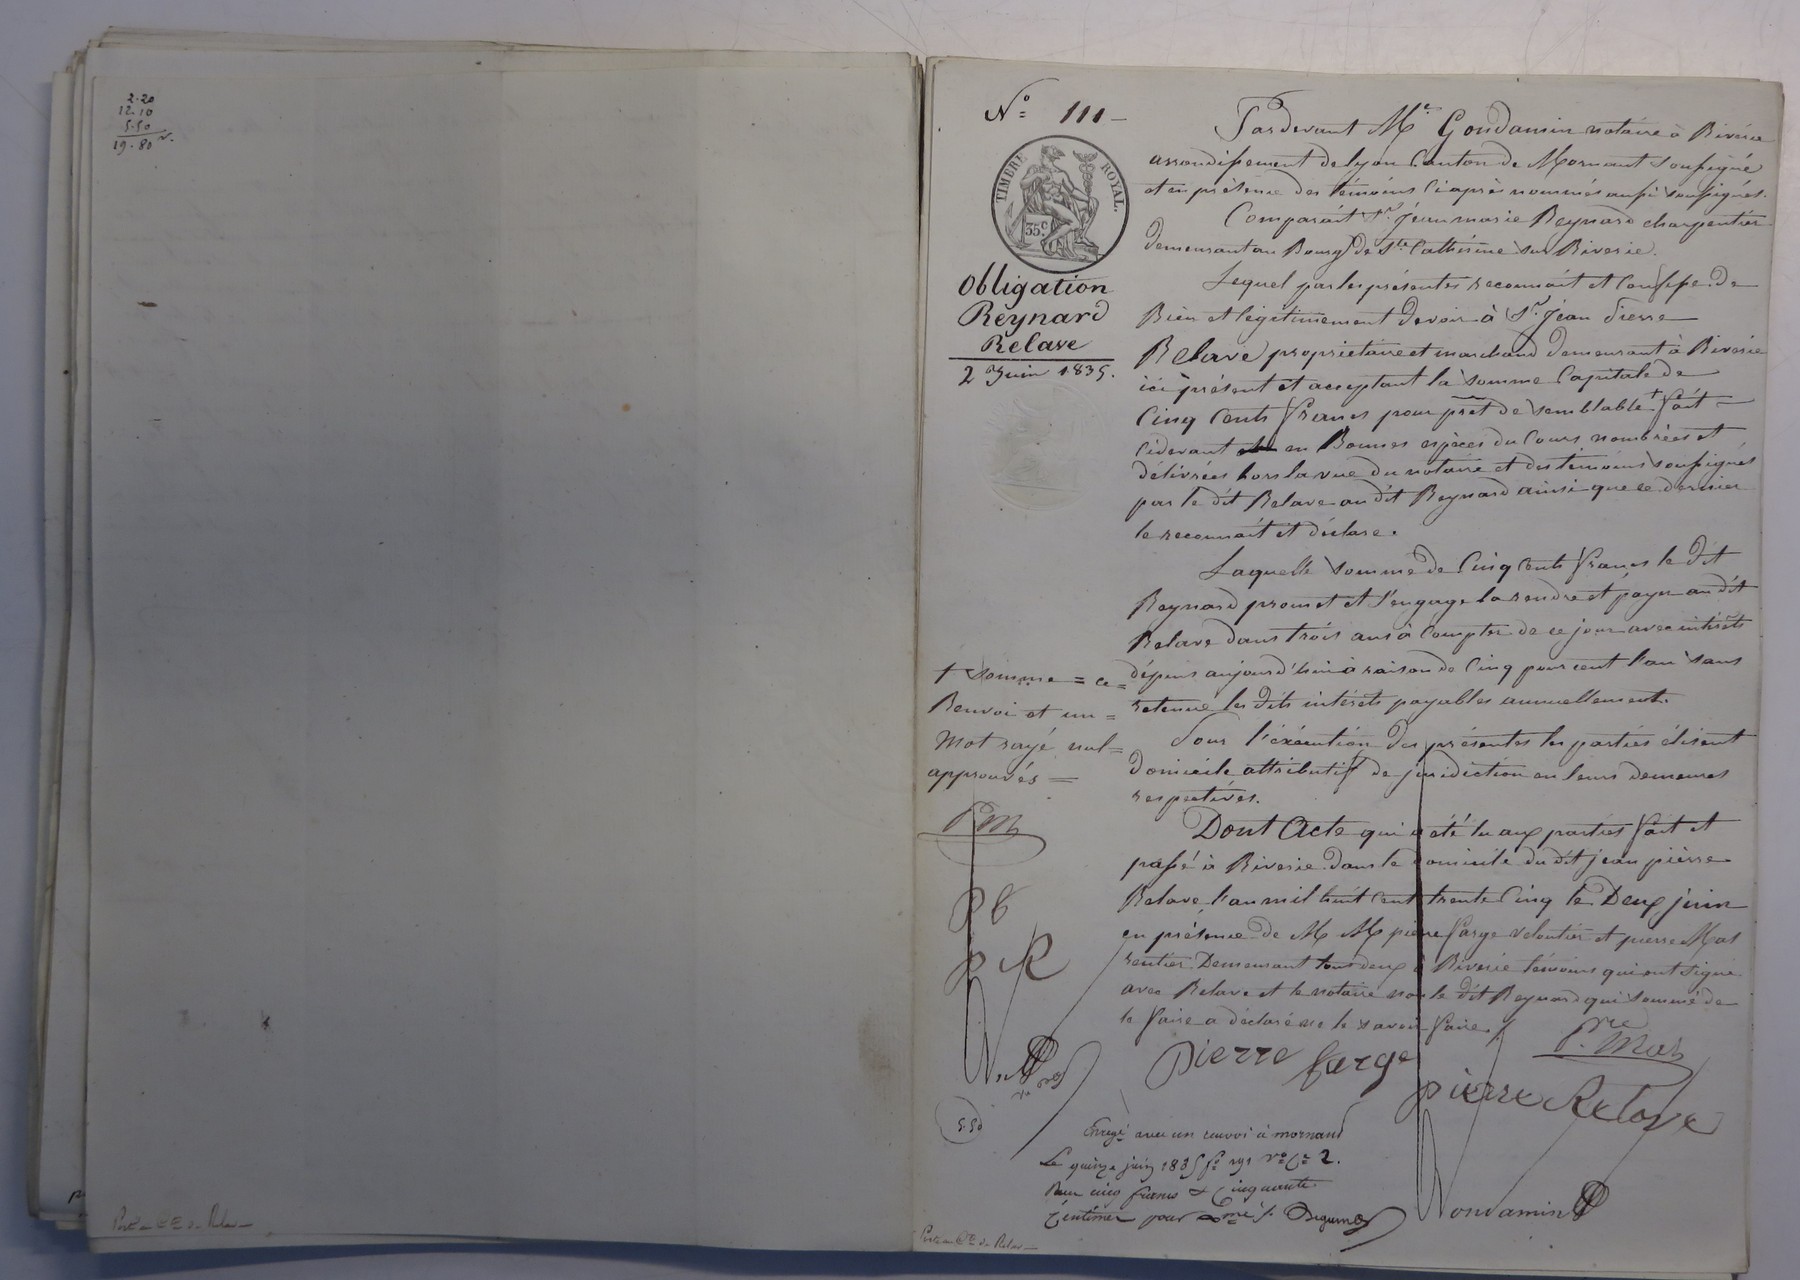 2.20
12.10
5.50
19.80
Porté au Cte de Relave
N° 111
TIMBRE ROYAL.
35 c
Obligation
Reynard
Relave
2 Juin 1835.
Pardevant Me Gondamin notaire à Riverie
arrondissement de Lyon Canton de Mornant soussigné
et en présence des témoins ci après nommés aussi soussignés.
Comparait Sr. Jean marie Reynard charpentier
demeurant au Bourg de Ste Cathérine sur Riverie.
Lequel par les présentes reconnait et confesse de
Bien et légitimement devoir à Sr. Jean Pierre
Relave propriétaire et marchand demeurant à Riverie
ici présent et acceptant la somme Capitale de
Cinq Cents francs pour prêt de semblable + fait
cidevant en Bonnes espèces du Cours nombrées et
délivrées hors la vue du notaire et des témoins soussignés
par le dit Relave au dit Reynard ainsi que ce dernier
le reconnait et déclare.
Laquelle somme de Cinq Cents francs le dit
Reynard promet et s'engage la rendre et payer au dit
Relave dans trois ans à Compter de ce jour avec intérêts
dépuis aujourd'hui à raison de Cinq pour cent l'an sans
retenue les dits intérêts payables annuellement.
Pour l'éxécution des présentes les parties élisent
domicile attributif de juridiction en leurs demeures
respectives.
Dont Acte qui a été lu aux parties fait et
passé à Riverie dans le domicile du dit jean pièrre
Relave l'an mil huit cent trente Cinq le Deux juin
en présence de M M pierre farge veloutier et pierre Mas
rentier Demeurant tous deux à Riverie témoins qui ont signé
avec Relave et le notaire non le dit Reynard qui sommé de
le faire a déclaré ne le savoir faire
+ somme = ce =
Renvoi et un =
Mot rayé nul =
approuvés =
PM
P f
P R
5.50
Pierre farge
P.re Mas
pierre Relave
Gondamin
Enregé avec un renvoi à mornant
Le quinze juin 1835 fo 191 Vo Ce 2.
Reçu cinq francs & Cinquante
Centimes pour Dme
Porté au Cte de Relave